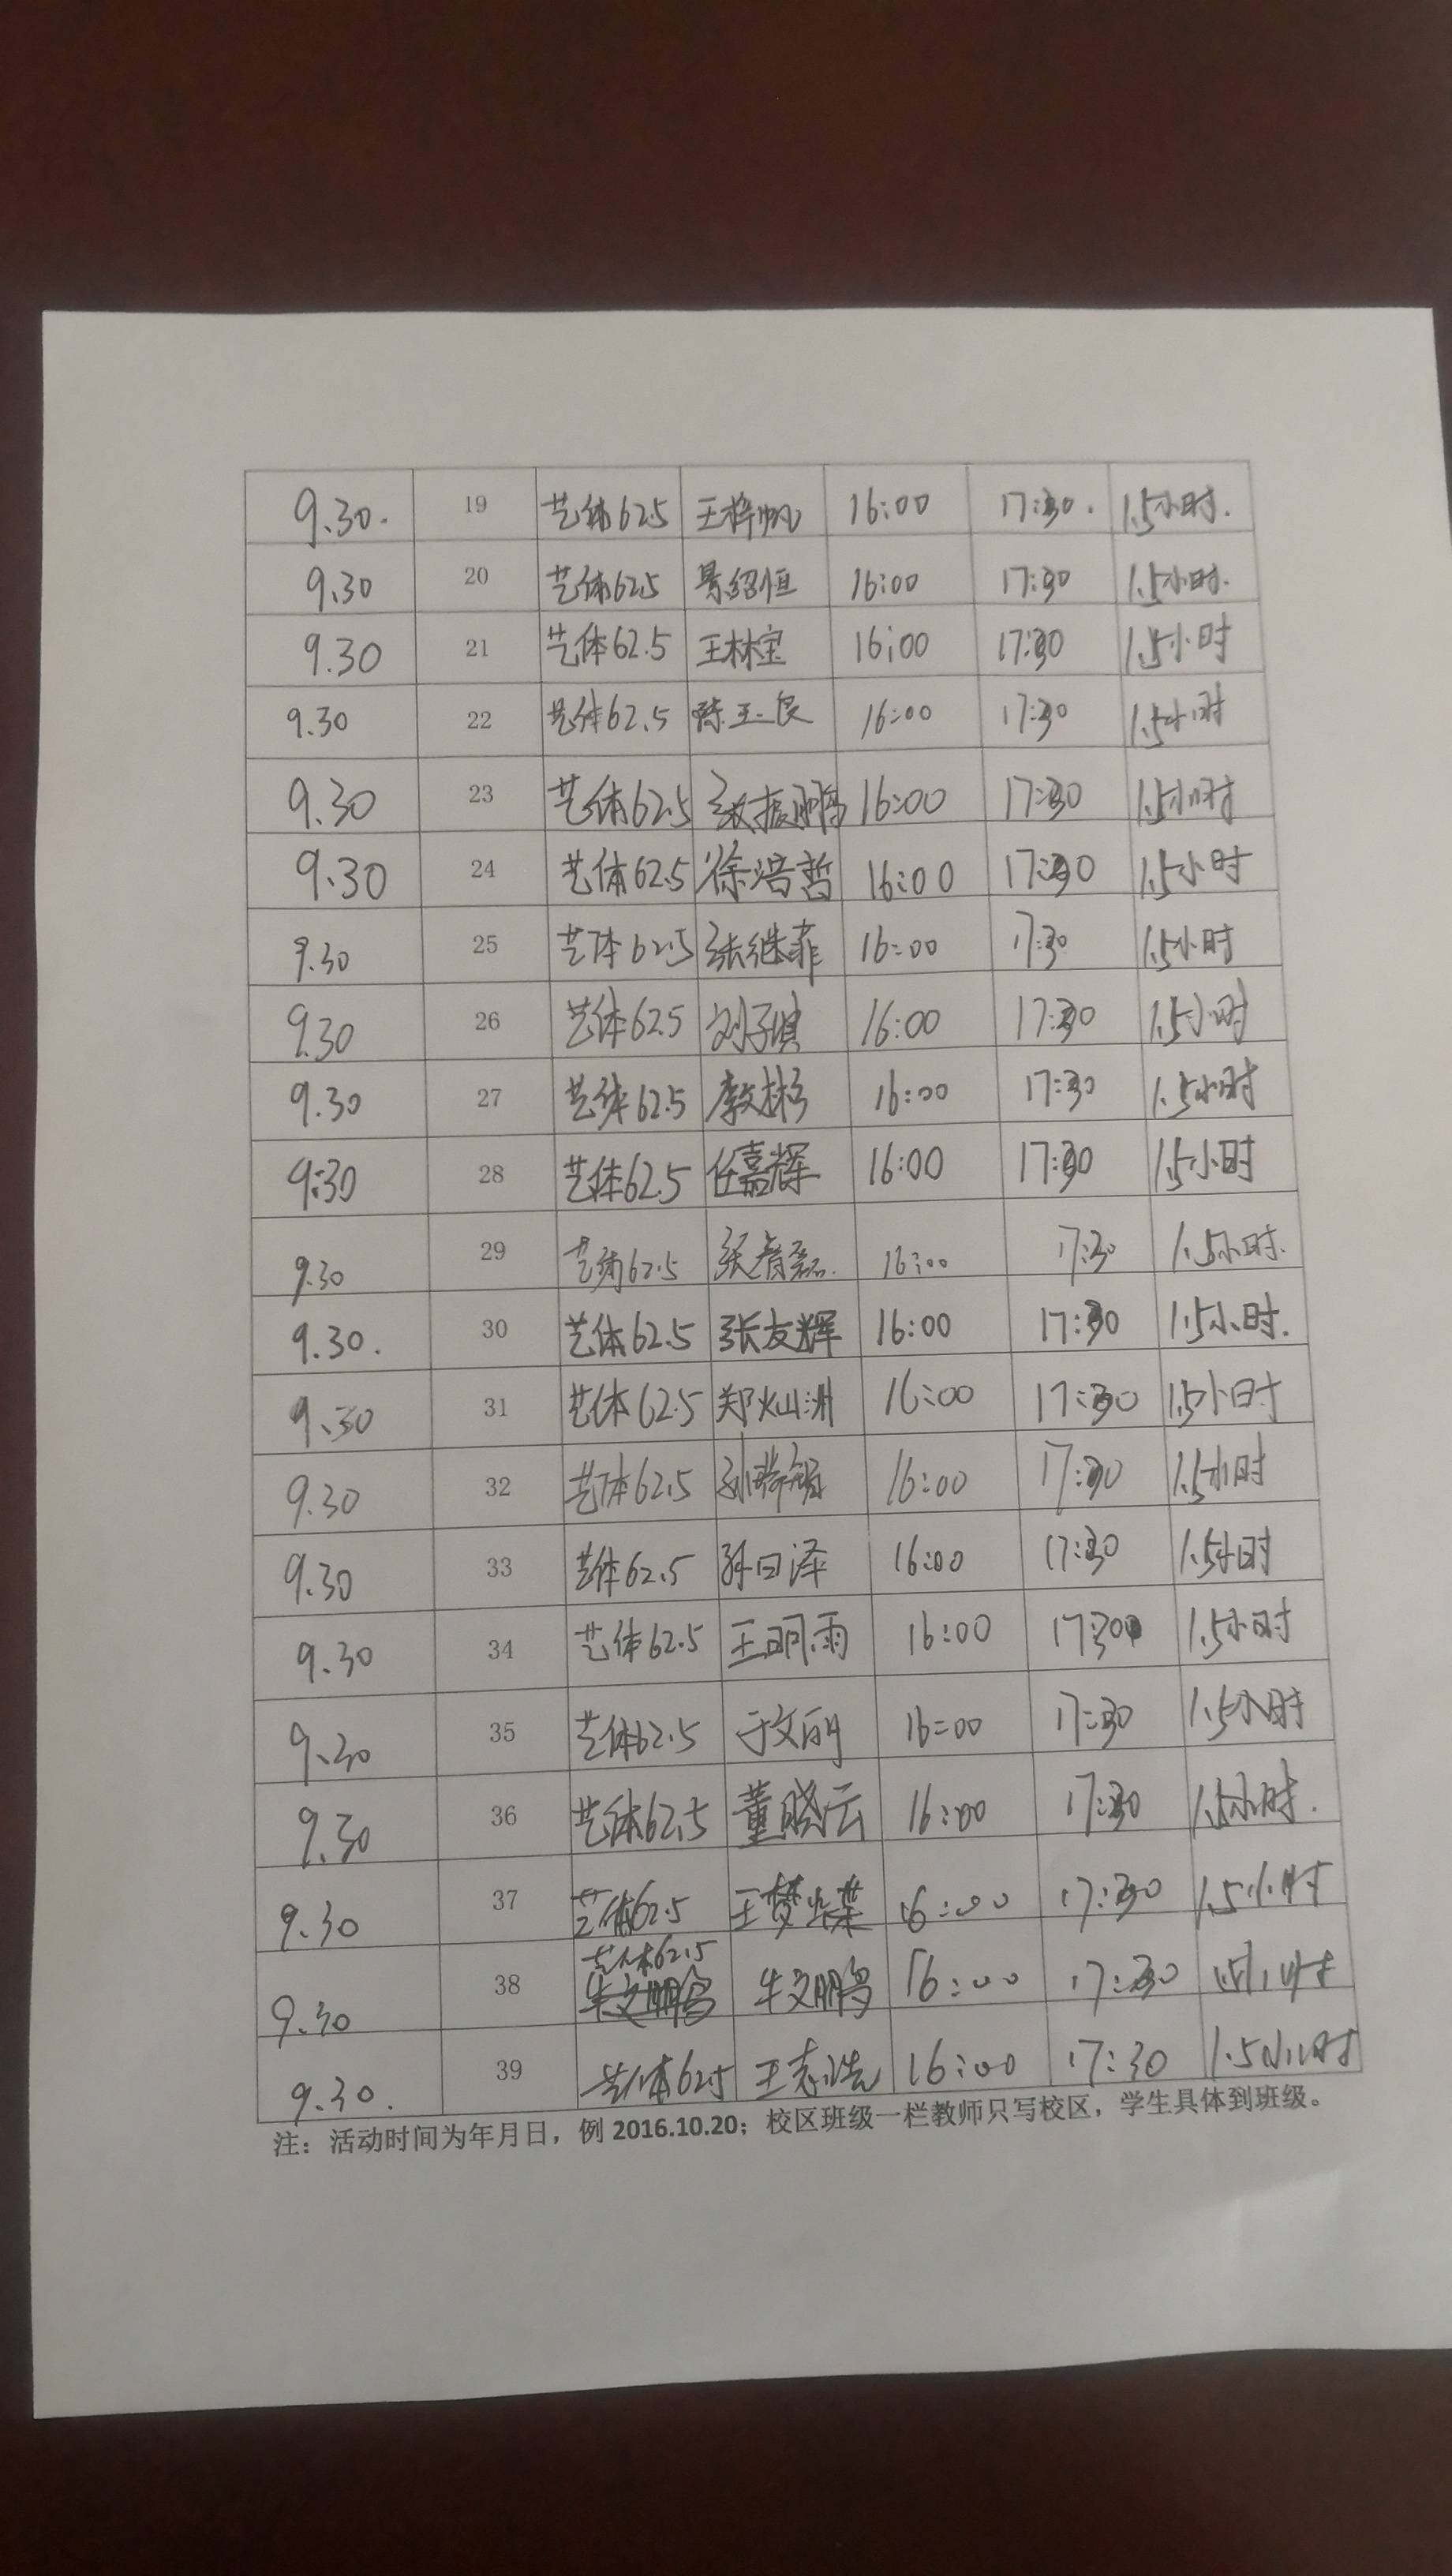 9.30. 19 艺体62.5 王梓帆 16:00 17:30. 1.5小时.
9.30 20 艺体62.5 景绍恒 16:00 17:30 1.5小时.
9.30 21 艺体62.5 王林宝 16:00 17:30 1.5小时
9.30 22 艺体62.5 陈玉良 16:00 17:30 1.5小时
9.30 23 艺体62.5 张振鹏 16:00 17:30 1.5小时
9.30 24 艺体62.5 徐浩哲 16:00 17:30 1.5小时
9.30 25 艺体62.5 张继菲 16:00 17:30 1.5小时
9.30 26 艺体62.5 刘子琪 16:00 17:30 1.5小时
9.30 27 艺体62.5 16:00 17:30 1.5小时
9:30 28 艺体62.5 任嘉辉 16:00 17:30 1.5小时
9.30 29 艺体62.5 16:00 17:30 1.5小时.
9.30. 30 艺体62.5 张友辉 16:00 17:30 1.5小时.
9.30 31 艺体62.5 郑灿洲 16:00 17:30 1.5小时
9.30 32 艺体62.5 16:00 17:30 1.5小时
9.30 33 艺体62.5 孙日泽 16:00 17:30 1.5小时
9.30 34 艺体62.5 王明雨 16:00 17:30 1.5小时
9.30 35 艺体62.5 于文丽 16:00 17:30 1.5小时
9.30 36 艺体62.5 董晓云 16:00 17:30 1.5小时.
9.30 37 艺体62.5 王梦蝶 16:00 17:30 1.5小时
9.30 38 艺体62.5 牛文鹏 16:00 17:30
9.30. 39 艺体62.5 王志浩 16:00 17:30 1.5小时
注：活动时间为年月日，例 2016.10.20；校区班级一栏教师只写校区，学生具体到班级。